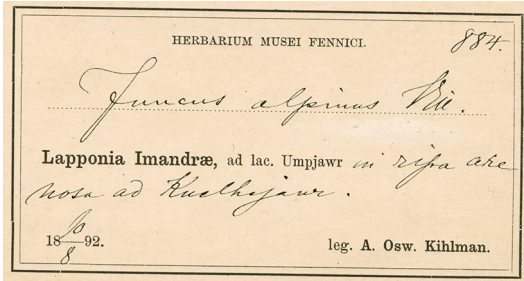 HERBARIUM MUSEI FENNICI.
884.
Juncus alpinus Vill.
Lapponia Imandræ, ad lac. Umpjawr in ripa are-
nosa ad Kuelhejawr.
10
18—92.
8
leg. A. Osw. Kihlman.